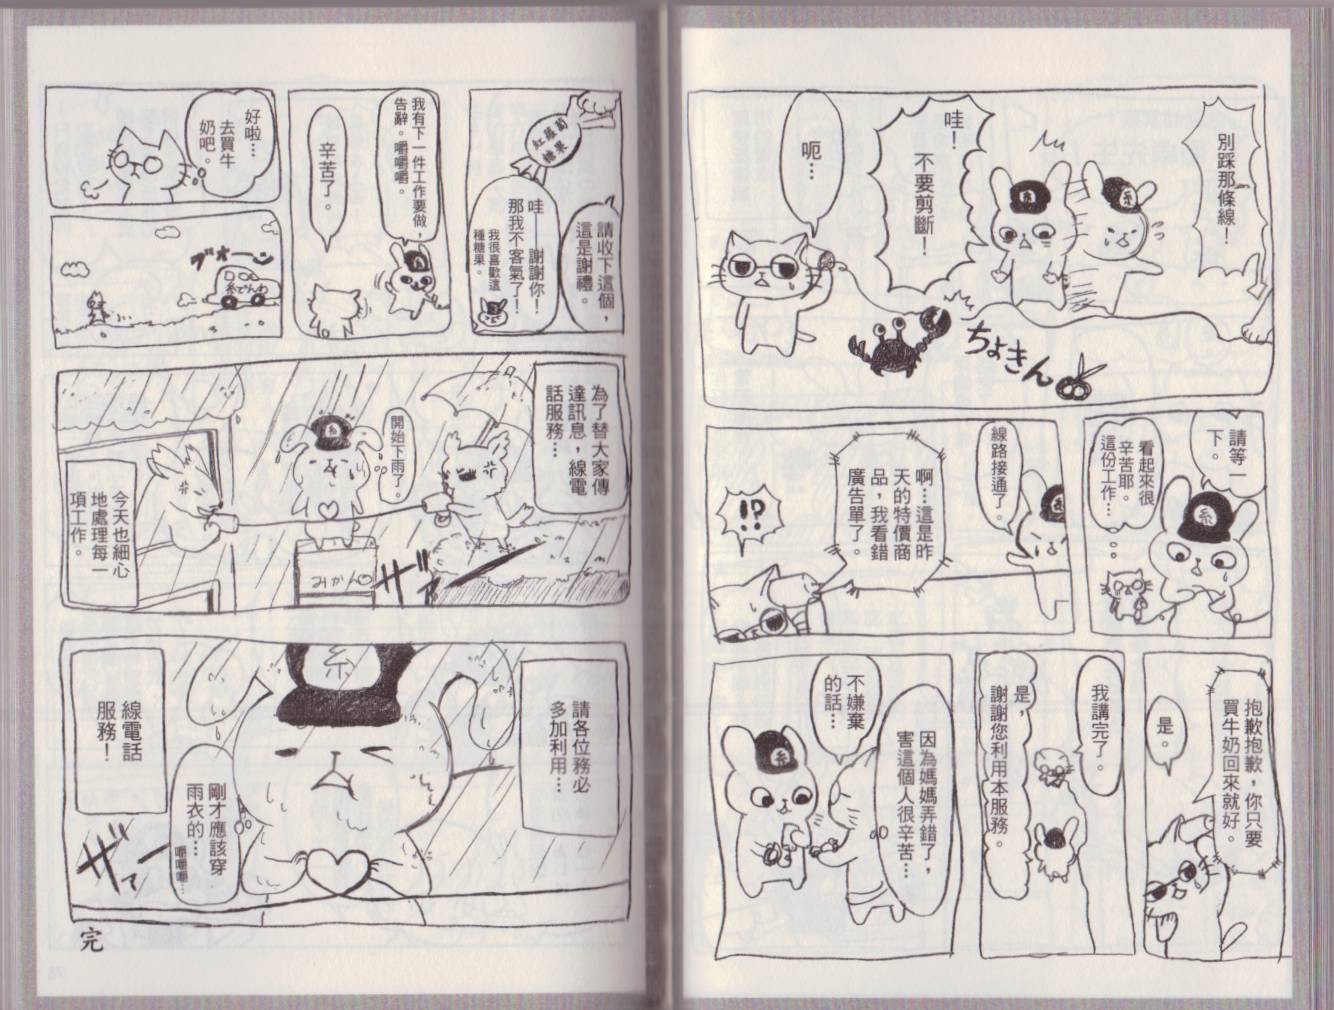 別踩那條線！
哇！
不要剪斷！
呃…
糸
ちょきん
請等一
下。
看起來很
辛苦耶。
這份工作…
糸
線路接通了。
啊…這是昨
天的特價商
品，我看錯
廣告單了。
!?
抱歉抱歉，你只要
買牛奶回來就好。
是。
我講完了。
是，
謝謝您利用本服務。
因為媽媽弄錯了，
害這個人很辛苦…
不嫌棄
的話…
糸
紅蘿蔔
糖果
請收下這個，
這是謝禮。
哇 謝謝你！
那我不客氣了！
我很喜歡這
種糖果。
我有下一件工作要做，
告辭。嚼嚼嚼。
辛苦了。
好啦…
去買牛
奶吧。
ブオーン
糸でんわ
為了替大家傳
達訊息，線電
話服務…
開始下雨了。
糸
みかん
ザァー
今天也細心
地處理每一
項工作。
請各位務必
多加利用…
糸
剛才應該穿
雨衣的…
嚼嚼嚼…
線電話
服務！
ザァー
完